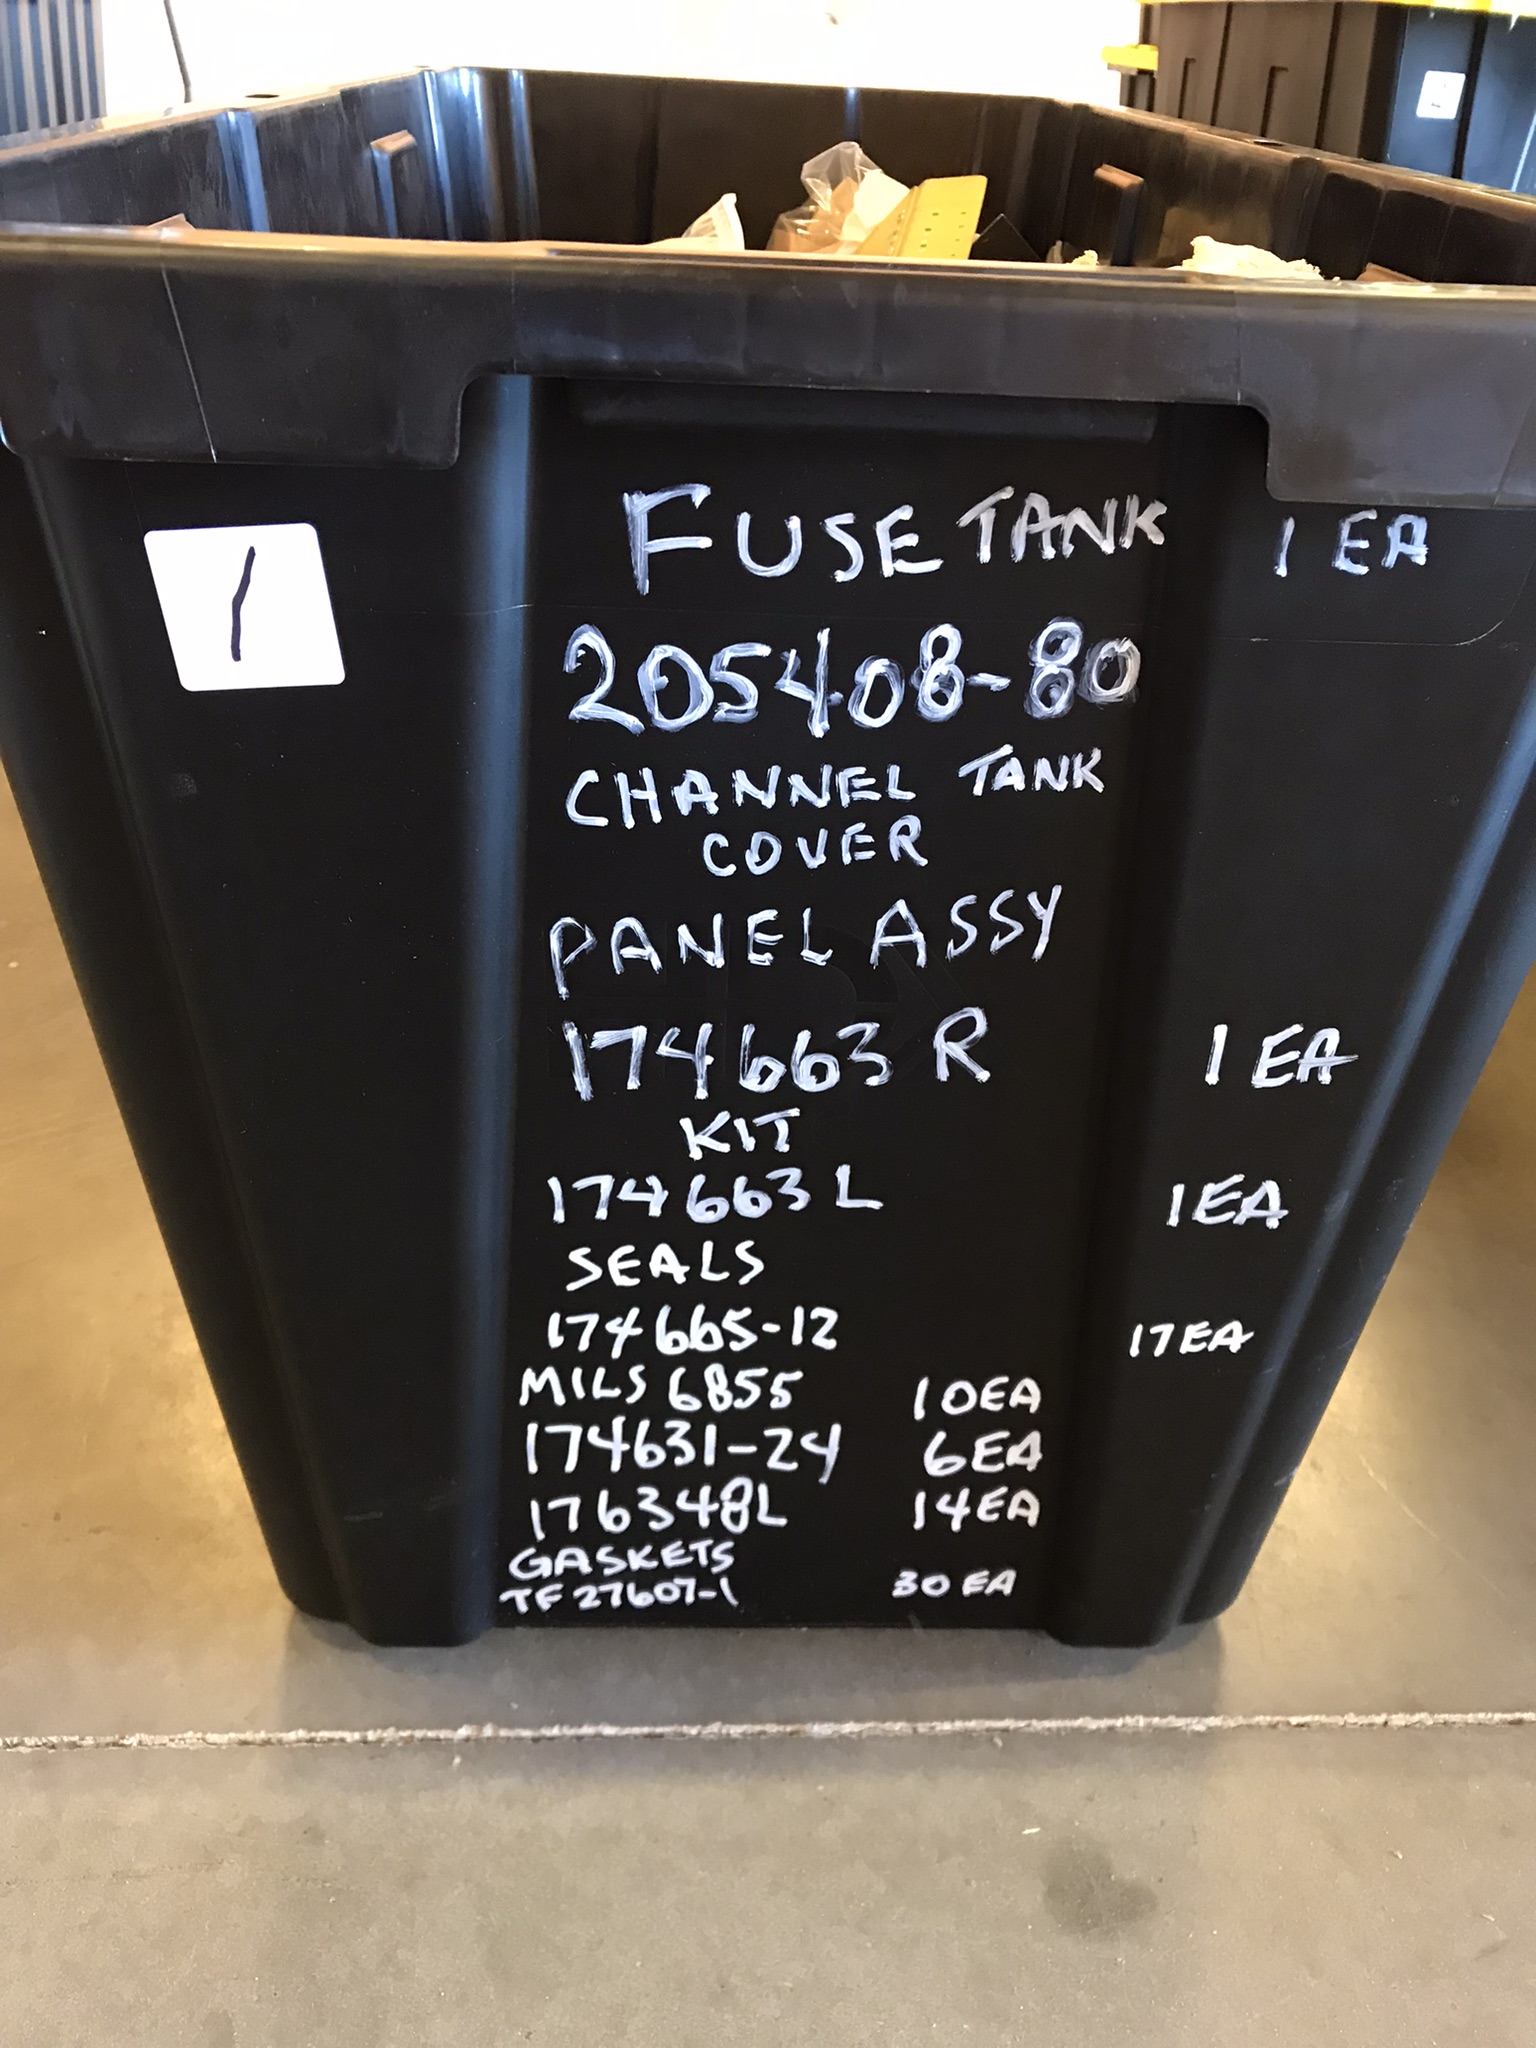 1
FUSE TANK 1 EA
205408-80
CHANNEL TANK
COVER
PANEL ASSY
174663 R 1 EA
KIT
174663 L 1 EA
SEALS
174665-12 17 EA
MILS 6855 10 EA
174631-24 6 EA
176348L 14 EA
GASKETS
TF27607-1 30 EA